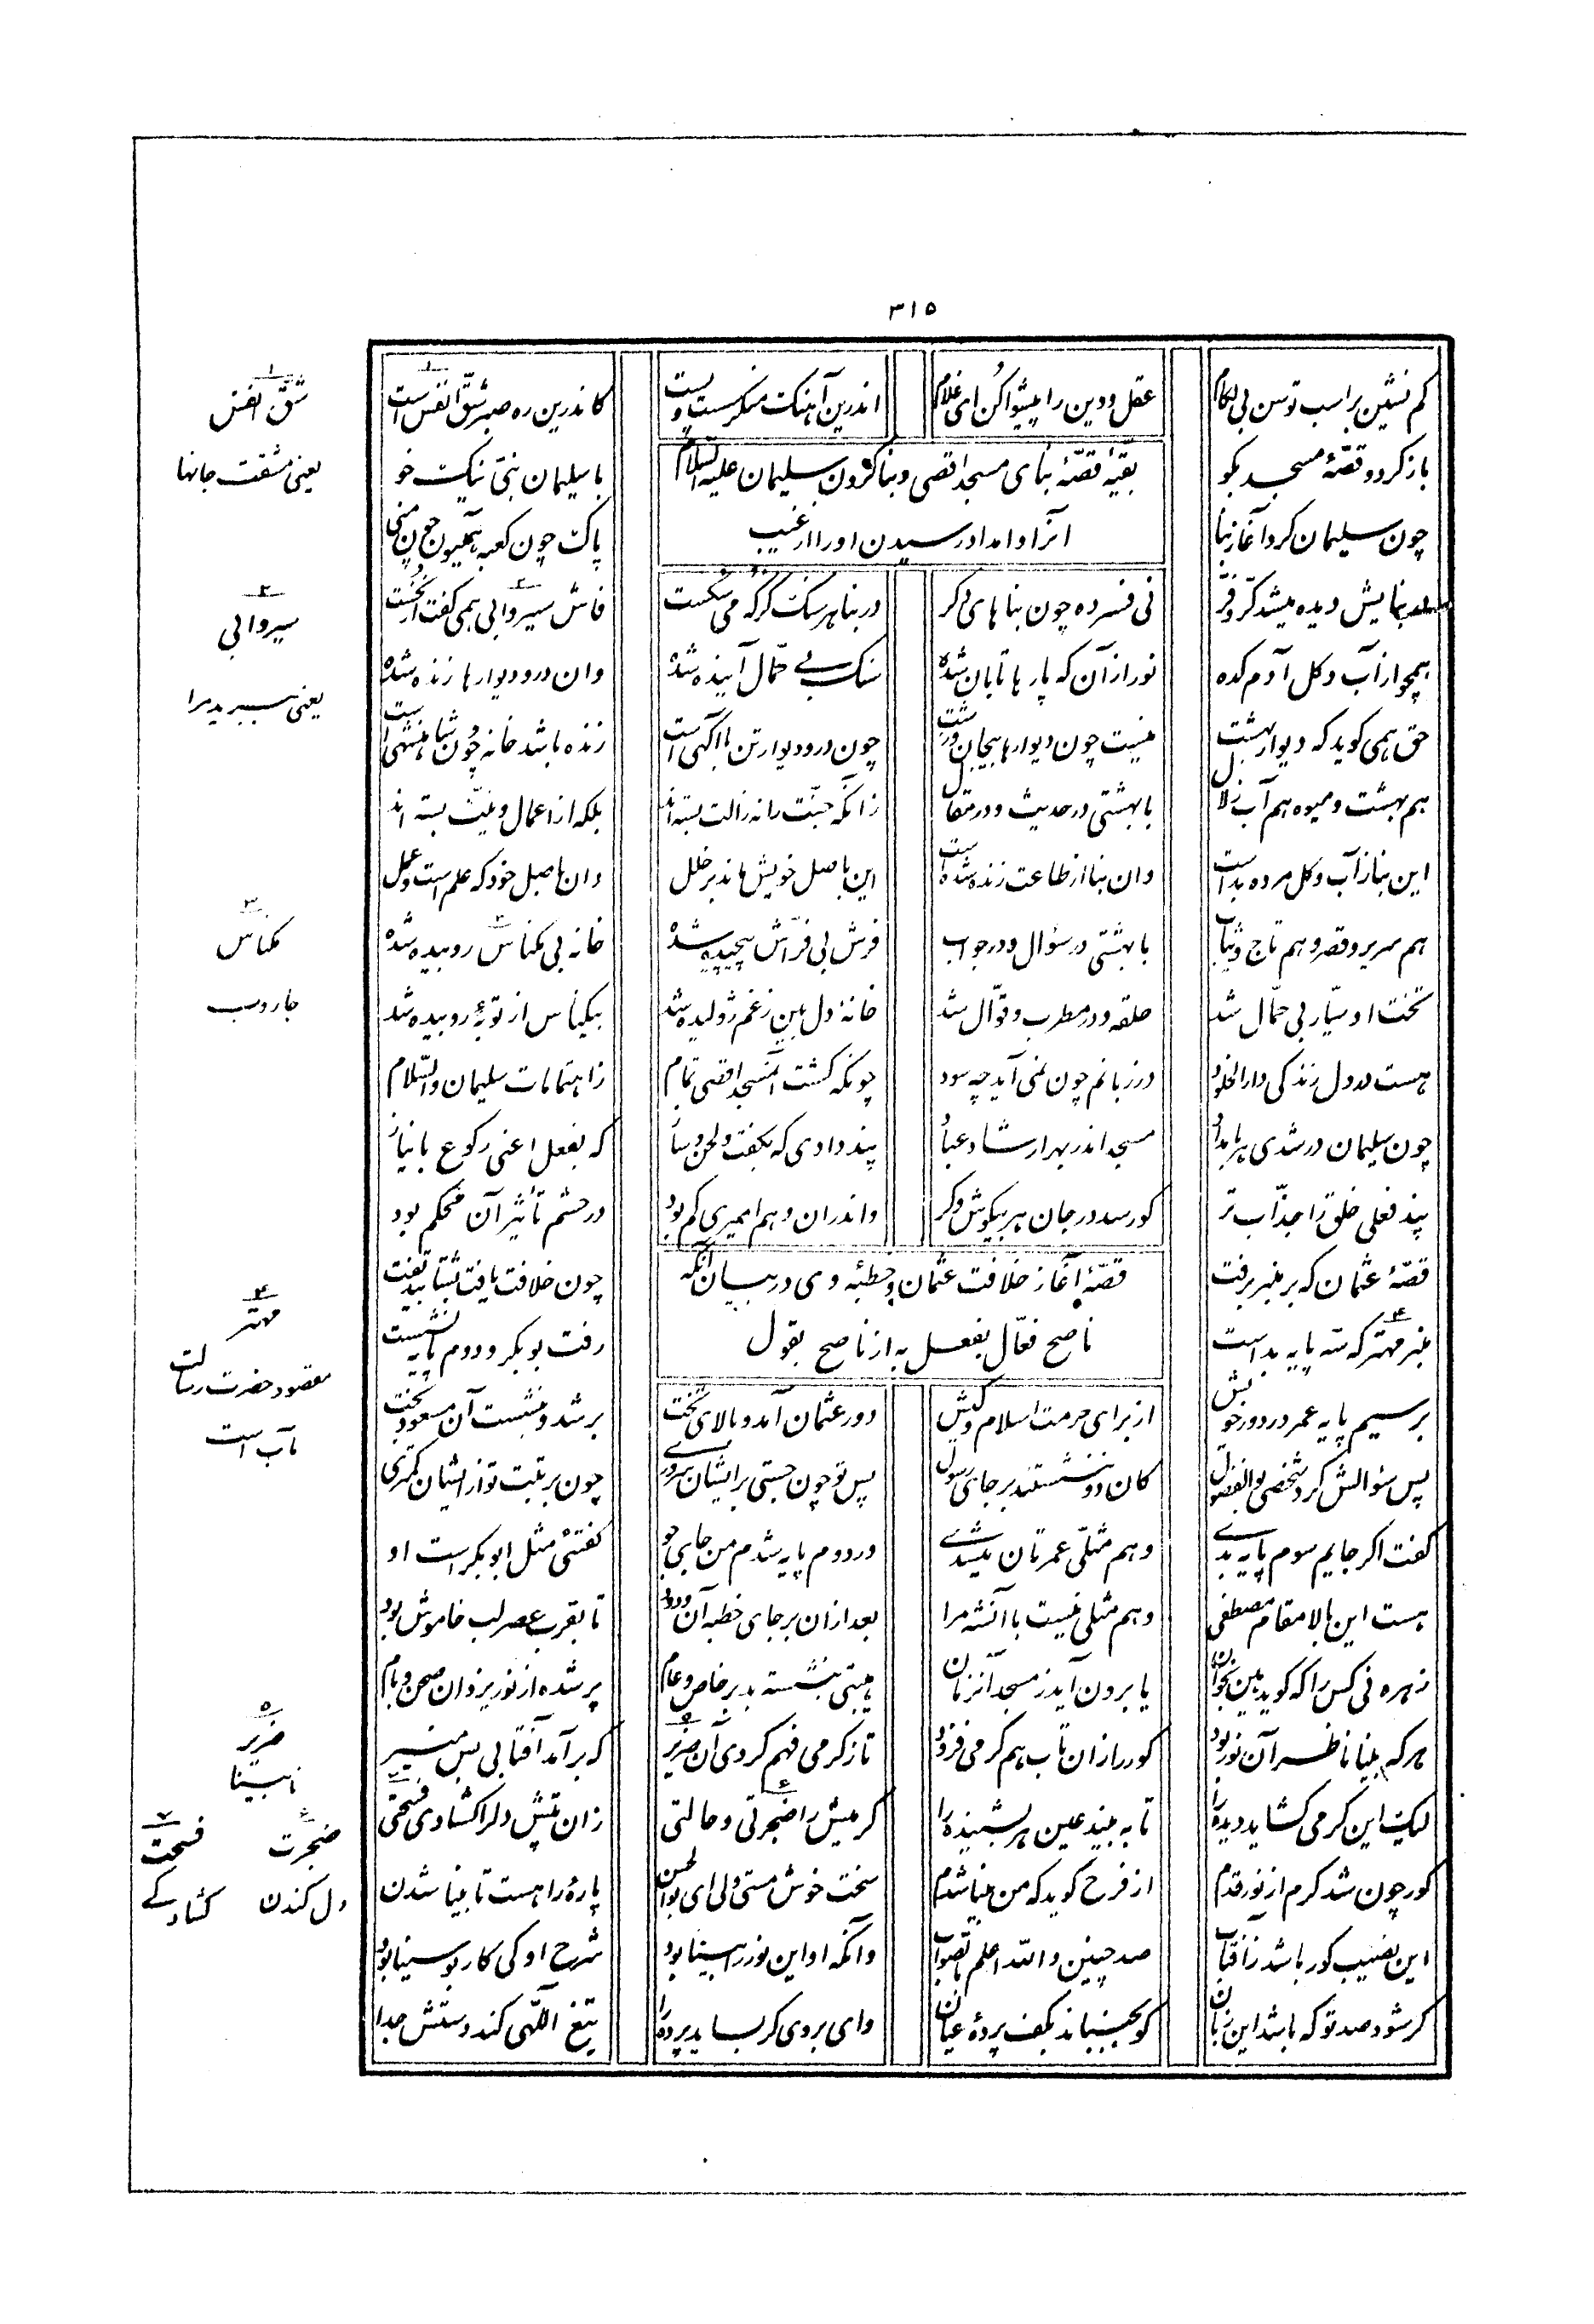 ۳۱۵
کم نشین بر اسب توسن بی لکام عقل و دین را پیشوا کن ای غلام اندرین آهنک منکر سست و پست کاندرین ره صبر و شق انفس است
باز کرد و قصّهٔ مسجد بکو با سلیمان نبیّ نیک خو
بقیّهٔ قصّهٔ بنای مسجد اقصی و بنا کردن سلیمان علیه السّلام
آنرا و امداد رسیدن او را از غیب
چون سلیمان کرد آغاز بنا پاک چون کعبه همایون چون منی
در بنایش دیده میشد کرّ و فرّ نی فسرده چون بناهای دکر در بنا هر سنک کز که می سکست فاش سیروابی همی کفت از نخست
همچو از آب و کل آدم کده نور از آن که پارها تابان شده سنک بی حمّال آینده شده وان در و دیوارها زنده شده
حق همی کوید که دیوار بهشت نیست چون دیوارها بیجان و زشت چون در و دیوار تن با آکهی است زنده باشد خانه چون شاهنشهی است
هم بهشت و میوه هم آب زلال با بهشتی در حدیث و در مقال زانکه جنّت را نه ز آلت بسته اند بلکه از اعمال و نیّت بسته اند
این بنا ز آب و کل مرده بدست وان بنا از طاعت زنده شدست این باصل خویش ماند بر خلل وان باصل خود که علم است و عمل
هم سریر و قصر و هم تاج و ثیاب با بهشتی در سؤال و در جواب فرش بی فرّاش پیچیده شده خانه بی مکناس روبیده شده
تخت او سیّار بی حمّال شد حلقه و در مطرب و قوّال شد خانهٔ دل بین ز غم ژولیده شد بیکناس از توبهٔ روبیده شد
هست در دل زندکی دار الخلود در زبانم چون نمی آید چه سود چونکه کشت آن مسجد اقصی تمام ز اهتمامات سلیمان و السّلام
چون سلیمان در شدی هر بامداد مسجد اندر بهر ارشاد عباد پند دادی که بکفت و لحن و ساز که بفعل اعنی رکوع با نیاز
پند فعلی خلق را جذّاب تر کو رسد در جان هر بیکوش و کر واندران وهم امیری کم بود در حشم تأثیر آن محکم بود
قصّهٔ عثمان که بر منبر برفت چون خلافت یافت بشتابید تفت
قصّهٔ آغاز خلافت عثمان و خطبهٔ وی در بیان آنکه
ناصح فعّال بفعل به از ناصح بقول
منبر مهتر که سه پایه بدست رفت بوبکر و دوم پایه نشست
بر سیم پایه عمر در دور خویش از برای حرمت اسلام و کیش دور عثمان آمد و بالای تخت بر شد و بنشست آن مسعود بخت
پس سؤالش کرد شخصی بو الفضول کان دو ننشستند بر جای رسول پس تو چون جستی بر ایشان سروری چون برتبت تو از ایشان کمتری
کفت اکر جایم سوم پایه بدی وهم مثلی عمر تان بشدی ور دوم پایه شدم من جای جو کفتئی مثل ابو بکر است او
هست این بالا مقام مصطفی وهم مثلی نیست با آنشه مرا بعد از آن بر جای خطبه آن ودود تا بقرب عصر لب خاموش بود
زهره نی کس را که کوید هین بخوان یا برون آید ز مسجد آنزمان هیبتی بنشسته بد بر خاص و عام پر شده از نور یزدان صحن و بام
هر که بینا ناظر آن نور بود کور از آن تاب هم کرمی فزود تا ز کرمی فهم کردی آن ضریر که بر آمد آفتابی بس منیر
لیک این کرمی کشاید دیده را تا به بیند عین هر بشنیده را کرمیش را ضجرتی و حالتی زان تپش دلرا کشادی فسحتی
کور چون شد کرم از نور قدم از فرح کوید که من بینا شدم سخت خوش مستی ولی ای بو الحسن پارهٔ راهست تا بینا شدن
این نصیب کور باشد ز آفتاب صد چنین و اللّه اعلم بالصّواب وانکه او این نور را بینا بود شرح او کی کار بو سینا بود
کر شود صد تو که باشد این زبان کو بجنباند بکف پردهٔ عیان وای بر وی کر بساید پرده را تیغ اللّهی کند دستش جدا
۱
شقّ انفس
یعنی مشقت جانها
۲
سیروابی
یعنی ببرید مرا
۳
مکناس
جاروب
۴
مهتر
مقصود حضرت رسالت
مآب است
۵
ضریر
نابینا
۶
ضجرت
دل کندن
۷
فسحت
کشادکی